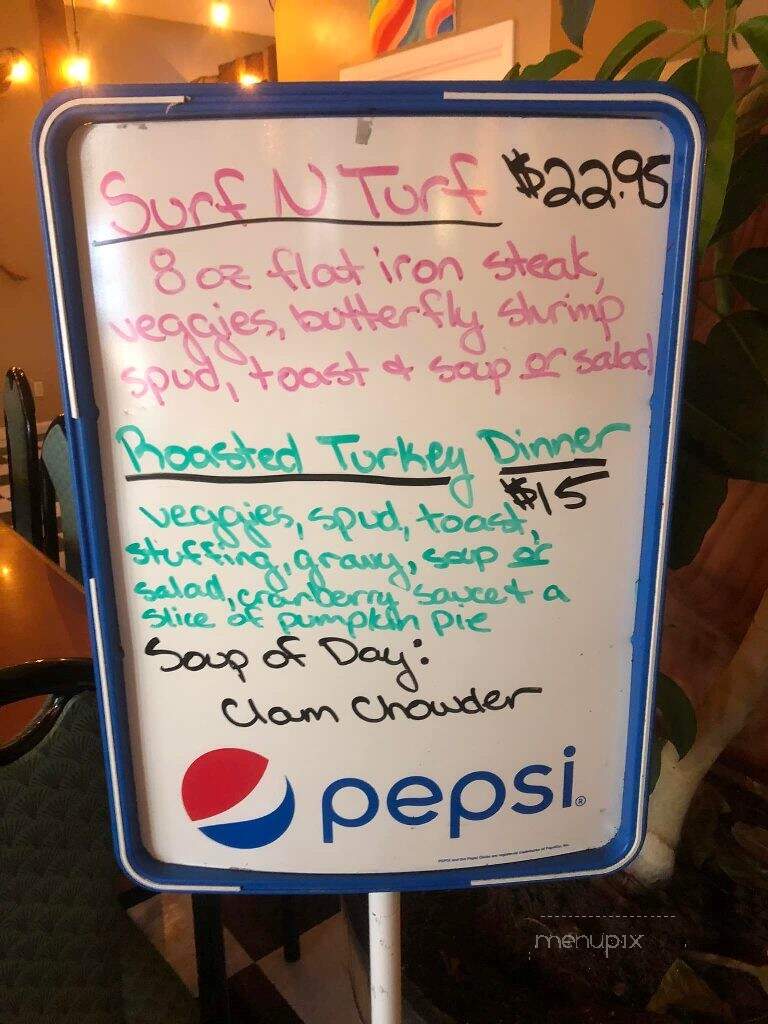 Surf N Turf $22.95
8 oz flat iron steak,
veggies, butterfly shrimp
spud, toast & soup or salad
Roasted Turkey Dinner
$15
veggies, spud, toast,
stuffing, gravy, soup or
salad, cranberry sauce + a
slice of pumpkin pie
Soup of Day:
Clam Chowder
pepsi®
menupix